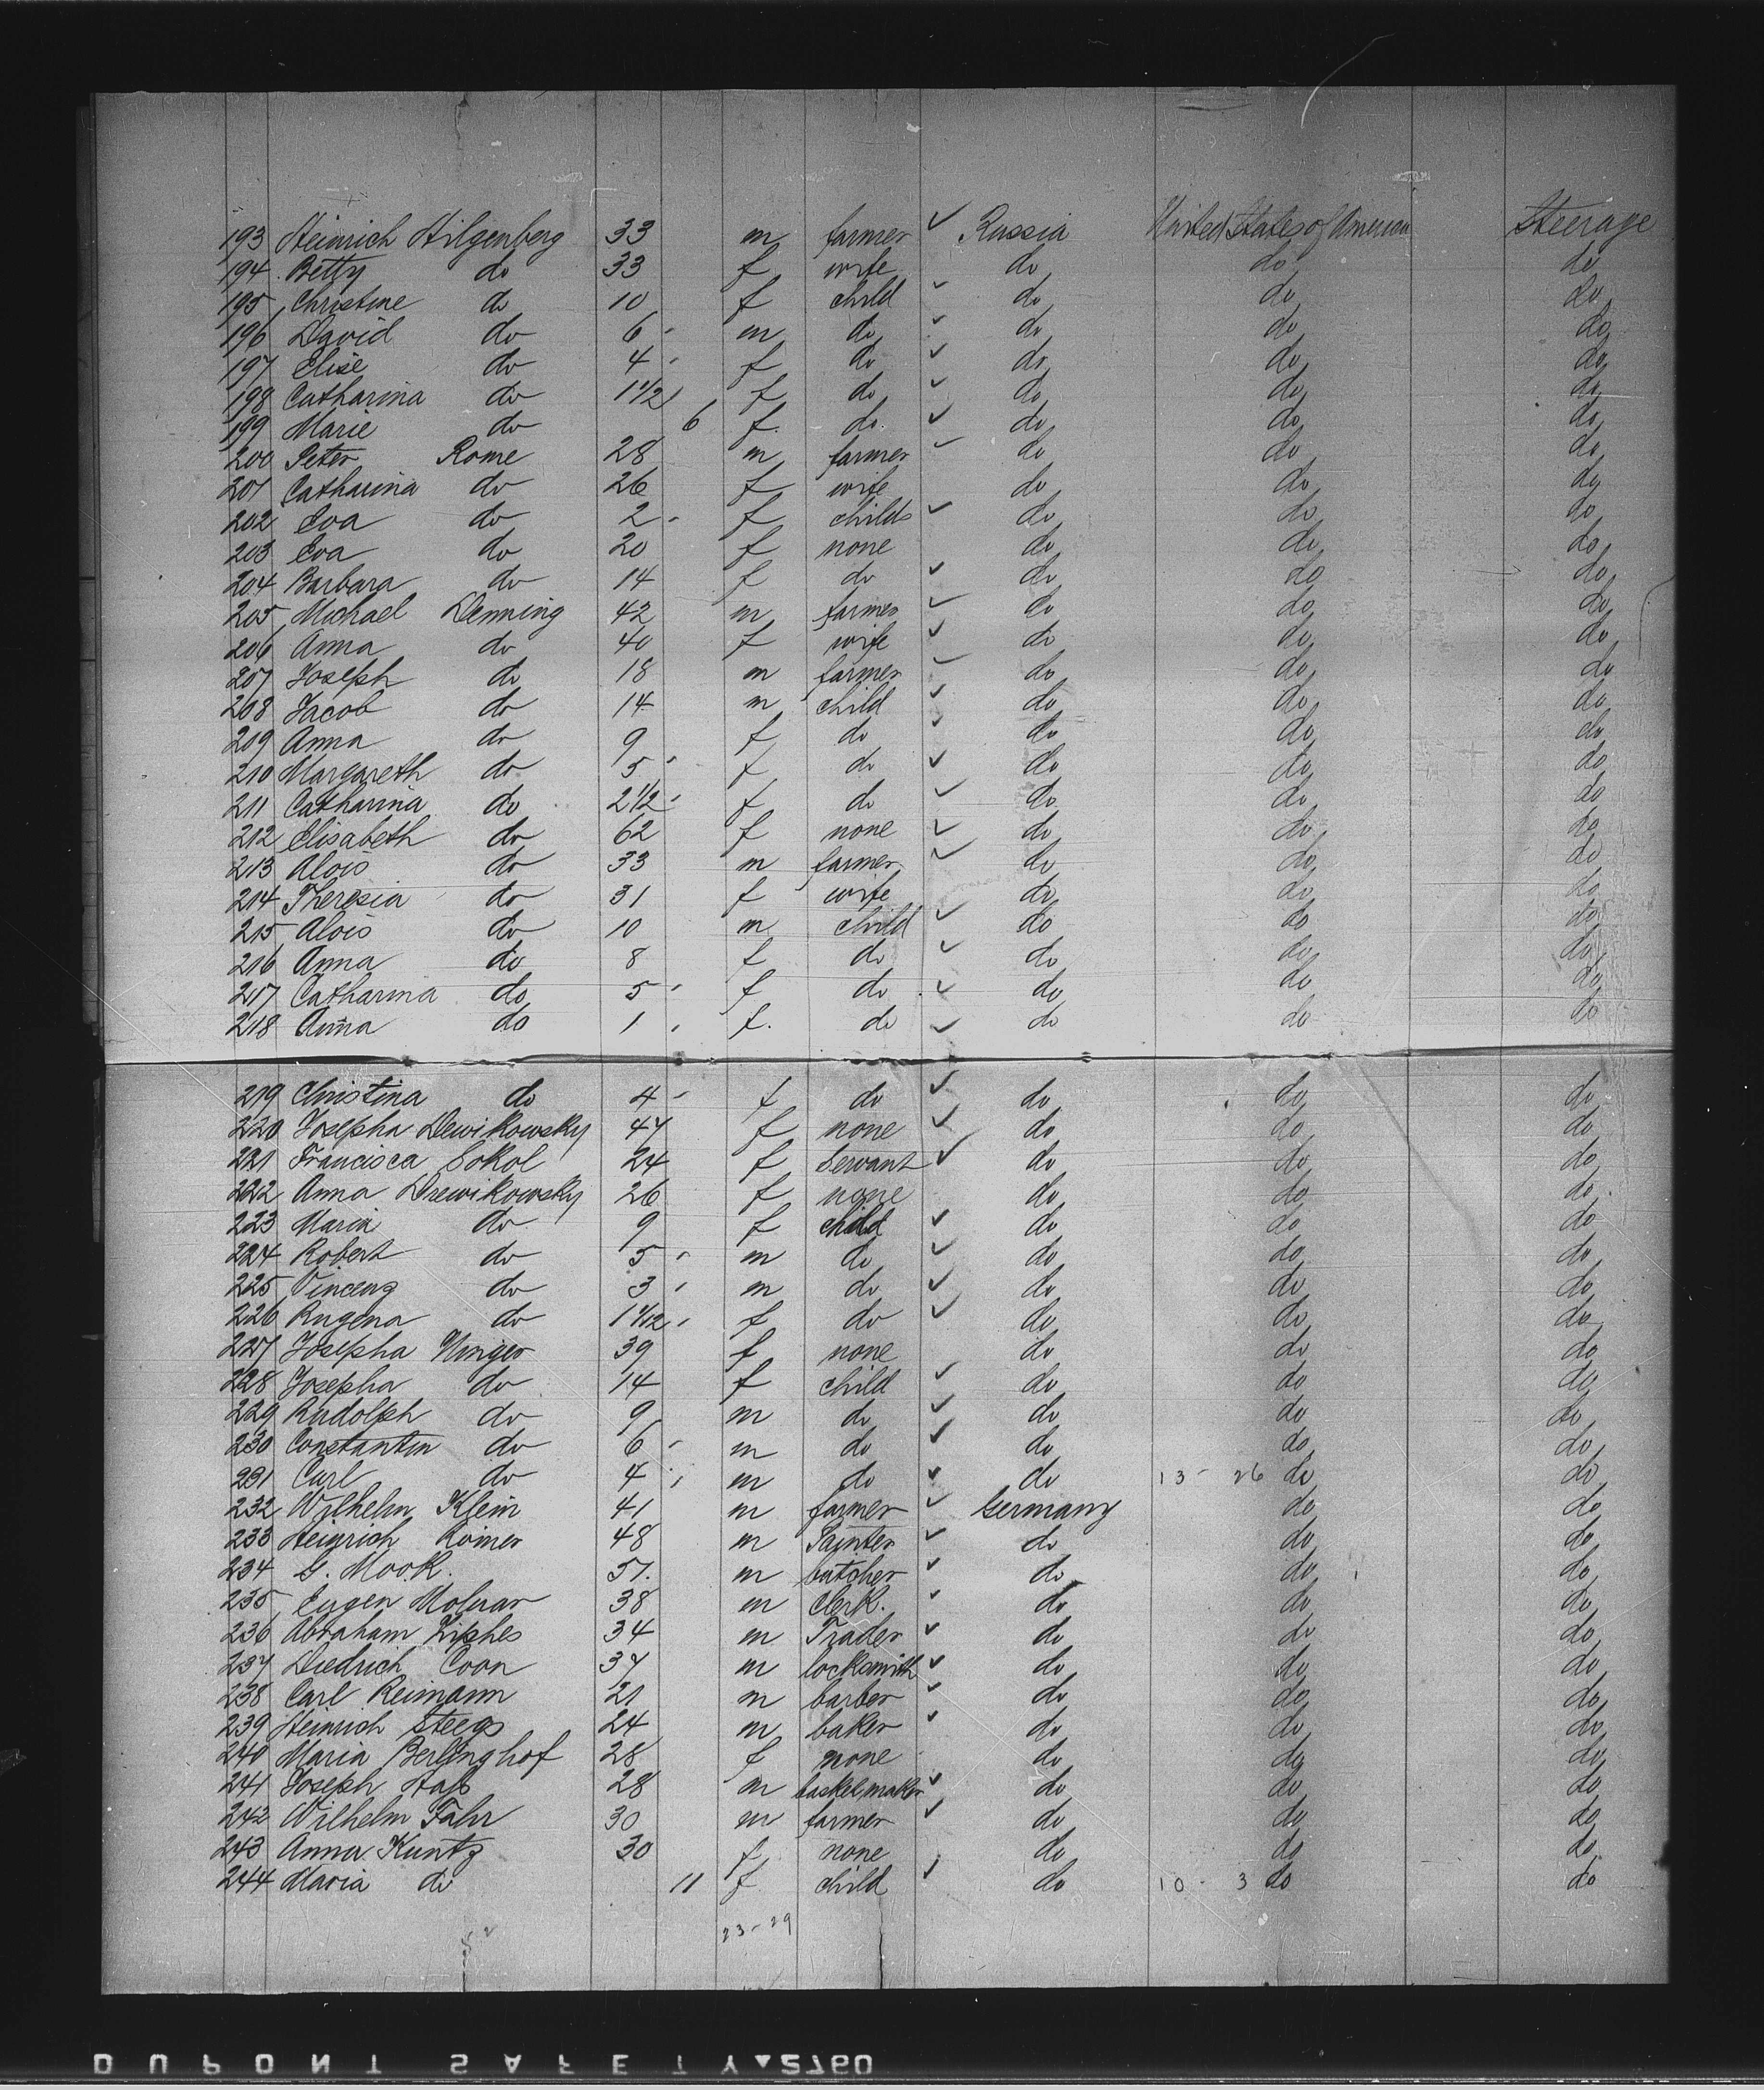 193 Heinrich Hilgenberg 33 m farmer ✓ Russia United States of America Steerage
194 Betty do 33 f wife do do do
195 Christine do 10 f child ✓ do do do
196 David do 6 - m do ✓ do do do
197 Elise do 4 - f do ✓ do do do
198 Catharina do 1 1/2 f do ✓ do do do
199 Marie do 6 f. do. ✓ do do do
200 Peter Rome 28 m farmer ✓ do do do
201 Catharina do 26 f wife do do do
202 Eva do 2 - f child ✓ do do do
203 Eva do 20 f none do do do
204 Barbara do 14 f do ✓ do do do
205 Michael Denning 42 m farmer ✓ do do do
206 Anna do 40 f wife ✓ do do do
207 Joseph do 18 m farmer ✓ do do do
208 Jacob do 14 m child ✓ do do do
209 Anna do 9 f do ✓ do do do
210 Margareth do 5 - f do ✓ do do do
211 Catharina do 2 1/2 - f do ✓ do do do
212 Elisabeth do 62 f none ✓ do do do
213 Alois do 33 m farmer ✓ do do do
214 Theresia do 31 f wife do do do
215 Alois do 10 m child ✓ do do do
216 Anna do 8 f do ✓ do do do
217 Catharina do 5 - f do ✓ do do do
218 Anna do 1 - f. do ✓ do do do
219 Christina do 4 - f do ✓ do do do
220 Josepha Dewikowsky 47 f none ✓ do do do
221 Francisca Sokol 24 f Servant ✓ do do do
222 Anna Drewikowsky 26 f none do do do
223 Maria do 9 f child ✓ do do do
224 Robert do 5 - m do ✓ do do do
225 Vincenz do 3 - m do ✓ do do do
226 Rugena do 1 1/12 - f do ✓ do do do
227 Josepha 39 f none do do do
228 Josepha do 14 f child ✓ do do do
229 Rudolph do 9 m do ✓ do do do
230 Constantin do 6 - m do ✓ do do do
231 Carl do 4 - m do ✓ do 13 - 26 do do
232 Wilhelm Klein 41 m farmer ✓ Germany do do
233 Heinrich Römer 48 m Painter ✓ do do do
234 G. Mook. 51. m butcher ✓ do do do
235 Eugen Molnar 38 m Clerk. ✓ do do do
236 Abraham 34 m Trader ✓ do do do
237 Diedrich Coon 37 m locksmith ✓ do do do
238 Carl Reimann 21 m barber ✓ do do do
239 Heinrich Steegs 24 m baker ✓ do do do
240 Maria Berlinghof 28 f none do do do
241 Joseph 28 m basketmaker ✓ do do do
242 Wilhelm Fahr 30 m farmer ✓ do do do
243 Anna Kuntz 30 f none do do do
244 Maria do 11 f child ✓ do 10 - 3 do do
23-29
DUPONT SAFETY 2760